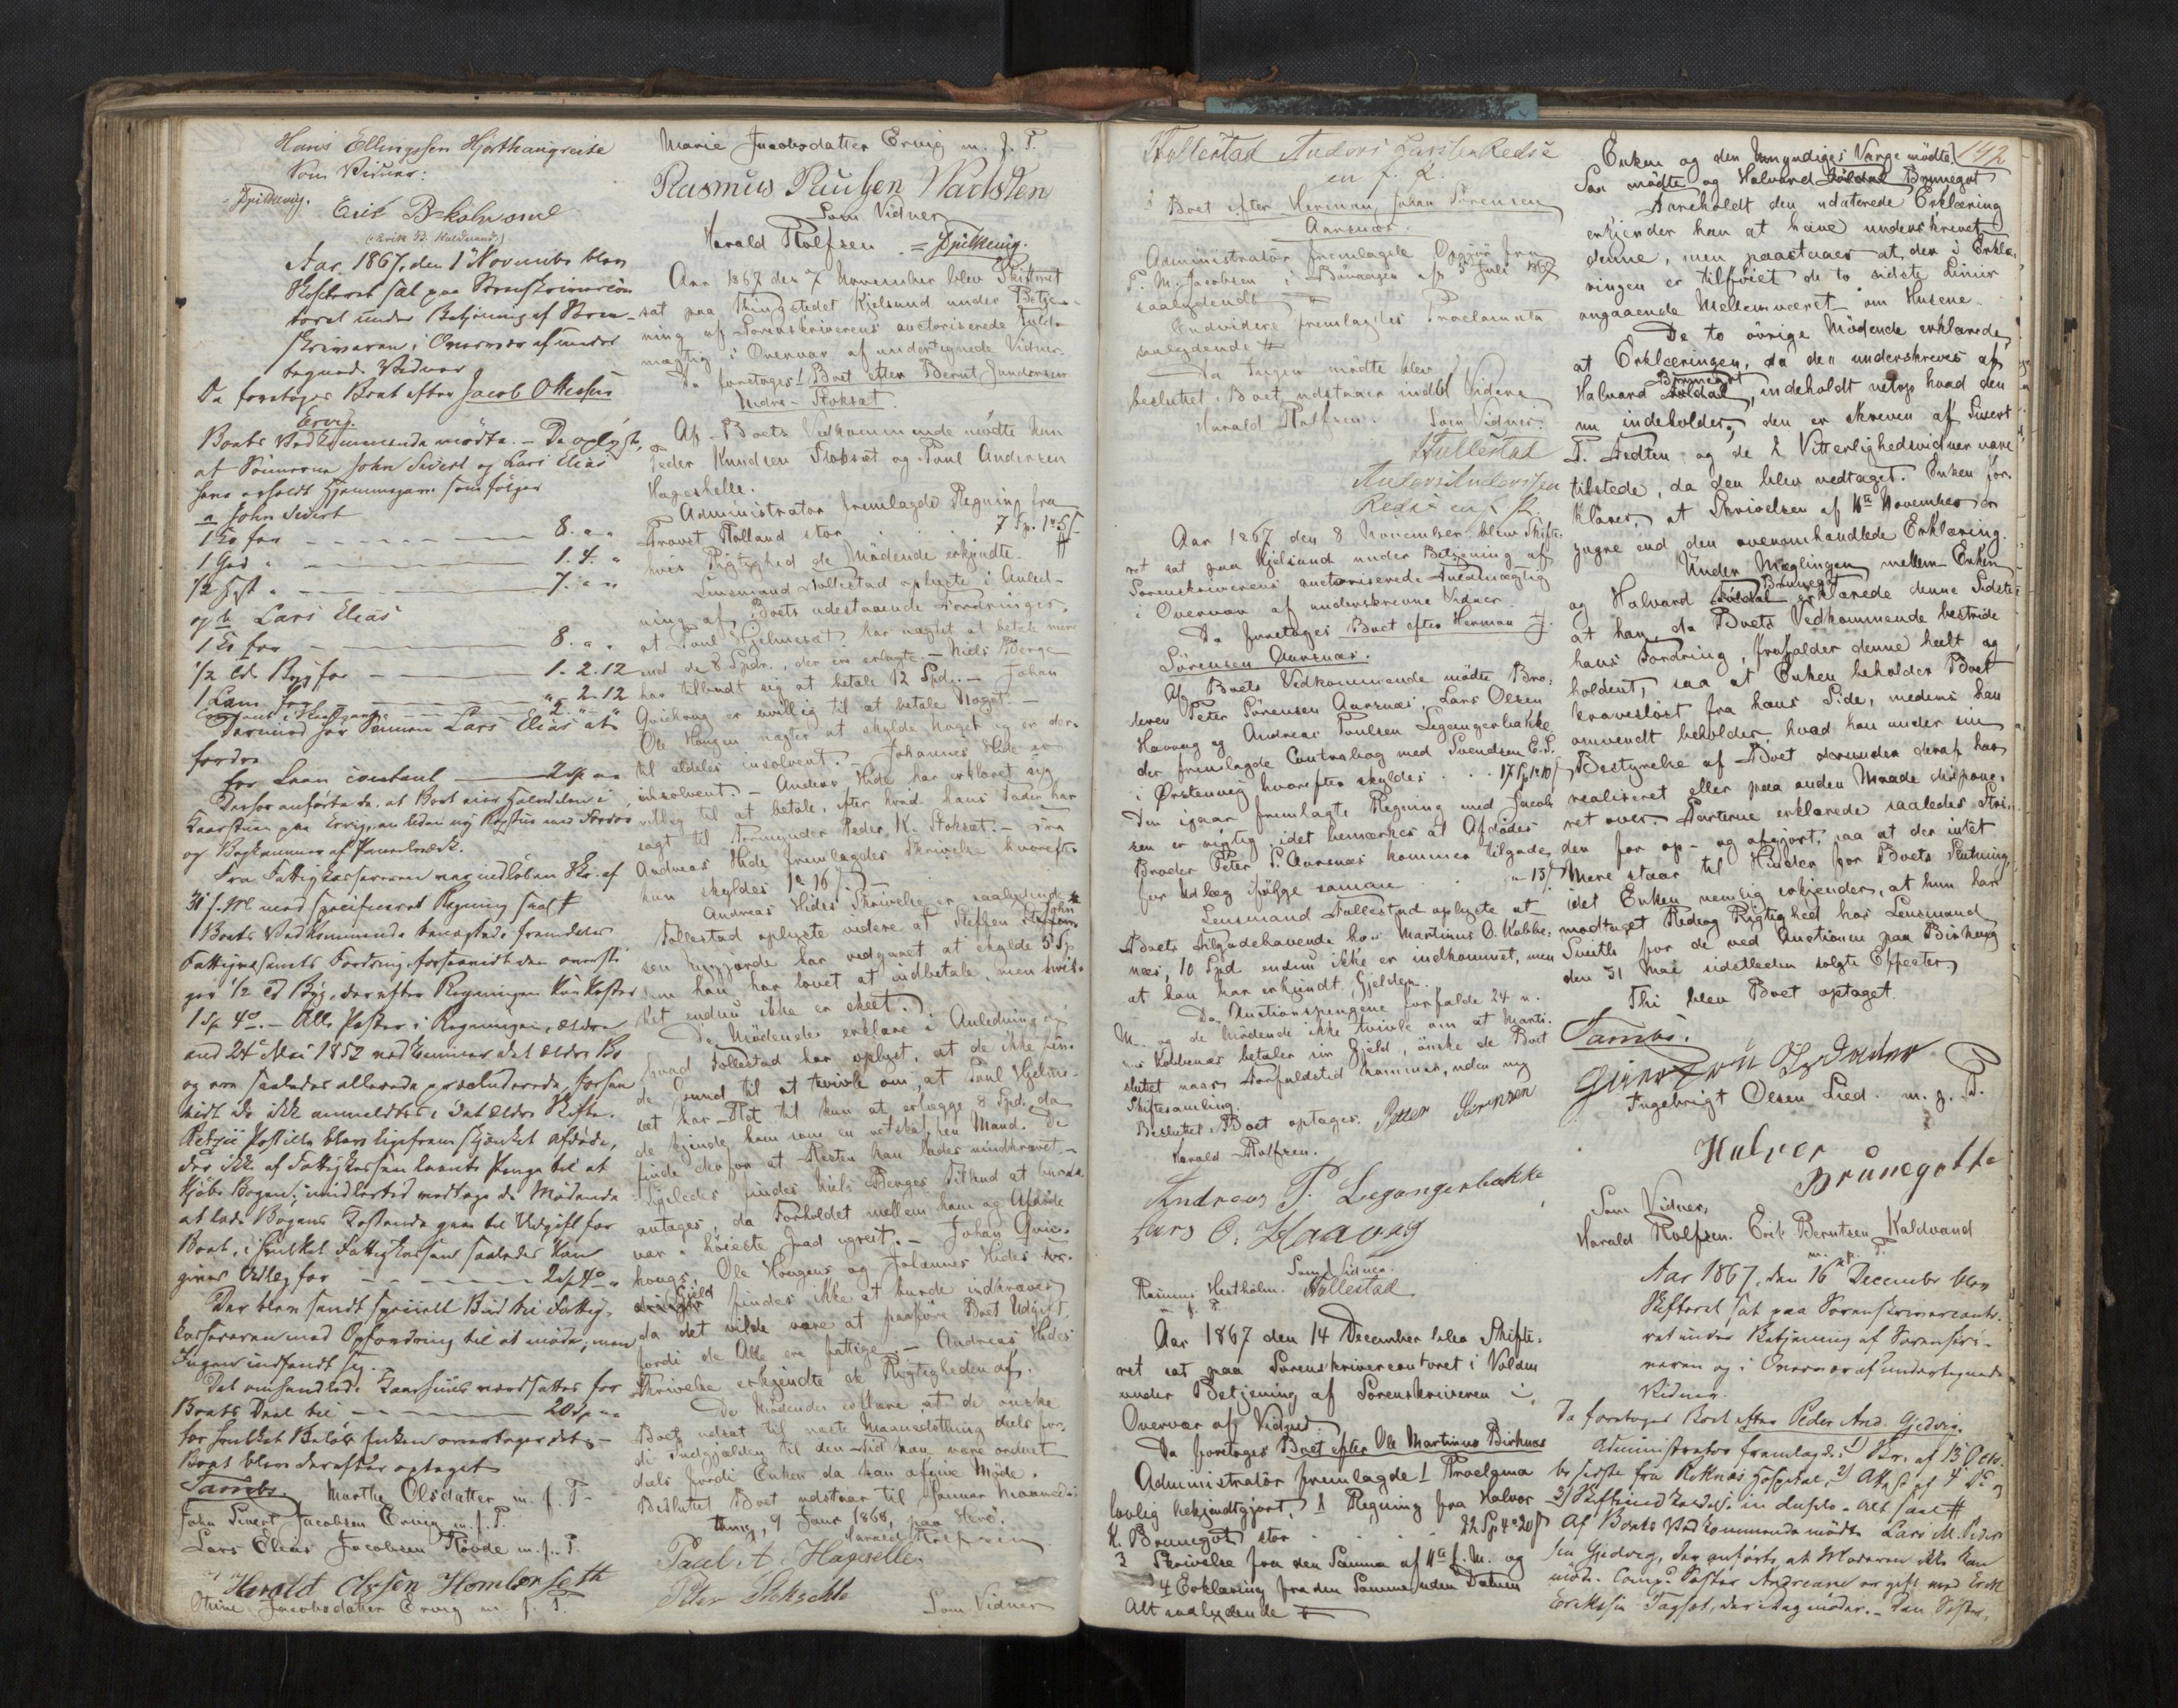 Hans Ellingssen Hjorthaugreite
Som Vidner:
Spilkevig.
Erik B. kalvand
(: Erik B. Kaldvand :)
Aar 1867, den 1 November blev
Skifteret sat paa Sorenskrivercon-
toret under Betjening af Soren-
skriveren i Overvær af under-
tegnede Vidner
Da foretoges Boet efter Jacob Ottesen
Ervig.
Boets Vedkommende mødte. - Da oplyst,
at Sønnerne John Sivert og Lars Elias
have erholdt Hjemmegave som følger
a John Sivert
1 Ko for 8. " "
1 Gjed " 1. 4. "
1/2 Hest " 7. " "
og b Lars Elias
1 Ko for 8. " "
1/2 Td. Byg for 1. 2. 12
1 Lam for " 2. 12
Derimod har Sønnen Lars Elias at
fordre
for Laan contant 2 Sp " "
Derfor anførtes da, at Boet eier Halvdelen i
Kaarstuen paa Ervig,
Fra Fattigkassereren var indløben Skr. af
31 f. M. med specificeret Regning saal. #
Boets Vedkommende benegtede fremdeles
Fattigvæsenets Fordring, forsaavidt den overstiger
1/2 Td Byg, derefter Regningen kun koster
1 Sp 4 o. - Alle Poster i Regningen, ældre
end 24 Mai 1852 vedkommer det ældre Bo
og ere saaledes allerede præcluderede, forsaa
vidt de ikke anmeldtes i det ældre Skifte.
Boet, i hvilket Fattigkassen saaledes kun
gives Udlæg for 2 Sp 4 o "
Der blev sendt specielt Bud til Fattig-
kassereren med Opfordring til at møde, men
Ingen indfandt sig.
Det omhandlede Kaarhuus værdsattes for
Boets Deel til 20 Sp " "
for hvilket Beløb Enken overtager det. -
Boet blev derefter optaget
Tambs. Marthe Olsdatter m. f. P.
John Sivert Jacobsen Ervig m. f. P.
Lars Elias Jacobsen Røvde m. f. P.
Harald Olssen Homberseth
Oline Jacobsdatter Ervig m. f. P.
Marie Jacobsdatter Ervig m. f. P.
Rasmus Paulsen Vadsten
Som Vidner
Harald Rolfsen = Spilkevig.
Aar 1867 den 7 November blev Skifteret
sat paa Thingstedet Kjelsund under Betje-
ning af Sorenskriverens auctoriserede Fuld-
mægtig i Overvær af undertegnede Vidner.
Da foretoges 1 Boet efter Bernt Gundersen
Indre-Stoksæt.
Af Boets Vedkommende mødte kun
Peder Knudsen Stoksæt og Paul Andersen
Hageskelle.
Administrator fremlagde Regning fra
Provst Rolland stor 7 Sp. 1 o 5 ſ
hvis Rigtighed de Mødende erkjendte. #
Lensmand Follestad oplyste i Anled-
ning af Boets udestaaende Fordringer,
at Paul Hjelmesæt har nægtet at betale mere
end de 8 Spdr., der ere erlagte. - Niels Berge
har tilbudt sig at betale 12 Spd. - Johan
Qvichoug er uvillig til at betale Noget. -
Ole Hougen nægter at skylde Noget og er der-
til aldeles insolvent. - Johannes Hide er
insolvent. - Andreas Hide har erklæret sig
villig til at betale, efter hvad hans Fader har
sagt til Formynder Peder K. Stoksæt. - Fra
Andreas Hide fremlagdes Skrivelse hvorefter
han skyldes 1 o 16 ſ
Andreas Hides Skrivelse er saalydende #
Follestad oplyste videre at Steffen John
sen Myrjorde har vedgaaet at skylde 5 Sp
som han har lovet at indbetale, men hvil-
ket endnu ikke er skeet.
De Mødende erklære i Anledning af
hvad Follestad har oplyst, at de ikke fin-
de Grund til at tvivle om, at Paul Hjelme-
sæt har Ret til kun at erlægge 8 Spd. da
de kjende ham som en retskaffen Mand. De
finde derfor at Resten kan lades uindkrævet. -
Ligeledes findes Niels Berges Tilbud at burde
antages, da Forholdet mellem ham og Afdøde
var i høieste Grad ugreit. - Johan Qvic-
hougs, Ole Hougens og Johannes Hides
Gjeld findes ikke at burde indkræves
da det vilde være at paaføre Boet Udgift,
fordi de Alle ere fattige. - Andreas Hides
Skrivelse erkjendte de Rigtigheden af.
De Mødende erklære at de ønske
Boet udsat til næste Maanedsthing deels for-
di Indgjælden til den Tid kan være ordnet
deels fordi Enken da kan afgive Møde.
Besluttet Boet udstaar til Januar Maaneds-
thing, 9 Janr 1868, paa Herø.
Harald Rolfsen
Paul A. Hageselle
Peter Stoksethe
Som Vidner
Follestad Anders Larsen Redsie
en f. P.
1 Boet efter Herman Johan Sørensen
Aarsnæs.
Administrator fremlagde Opgjør fra
P. M. Jacobsen i af 5 Juli 1867
saalydende #
Endvidere fremlagdes Proclamata
saalydende #
Da Ingen mødte blev
besluttet: Boet udstaar indtil Videre
Harald Rolfsen. Som Vidner:
Follestad
Anders Anderssen
Redsie en f. P.
Aar 1867 den 8 November blev Skifte-
ret sat paa Kjelsund under Betjening af
Sorenskriverens auctoriserede Fuldmægtig
i Overvær af underskrevne Vidner.
Da foretoges Boet efter Herman J.
Sørensen Aarsnæs.
Af Boets Vedkommende mødte Bro-
deren Peter Sørensen Aarsnæs, Lars Olsen
Haavag og Andreas Poulsen Legangerbakke
der fremlagde Contrabog med Svendsen E. S.
i Ørstenvig hvorefter skyldes 17 Sp 1 o 10 ſ
Den igaar fremlagte Regning med Jacob-
sen er rigtig, idet bemærkes at Afdødes
Broder Peter S. Aarsnæs kommer tilgode
for Udlæg ifølge samme " " 15 ſ
Lensmand Follestad oplyste at
Boets Tilgodehavende hos Martinus O. Kobbe-
næs, 10 Spd endnu ikke er indkommet, men
at han har erkjendt Gjelden.
Da Auctionspengene forfalde 24 n.
M. og de Mødende ikke tvivle om at Marti-
nus Kobbenæs betaler sin Gjeld, ønske de Boet
sluttet naar Forfaldstid kommer, uden ny
Skiftesamling.
Besluttet: Boet optages. Petter Sørensen
Harald Rolfsen.
Andreas P. Legangerbakke
Lars O. Haavag
Som Vidner.
Rasmus Hestholm. Follestad
m. f. P.
Aar 1867 den 14 December blev Skifte-
ret sat paa Sorenskrivercontoret i Volden
under Betjening af Sorenskriveren i
Overvær af Vidner.
Da foretoges Boet efter Ole Martinus Birknes
Administrator fremlagde 1 Proclama
lovlig bekjendtgjort, 2 Regning fra Halvor
K. Brunegot stor 22 Sp 4 o 20 ſ
3 Skrivelse fra den Samme af 11te f. M. og
4 Erklæring fra den Samme uden Datum
Alt saalydende #
142
Enken og den Umyndiges Værge mødte
Saa mødte og Halvard Brunegot
Foreholdt den udaterede Erklæring
erkjender han at have underskrevet
denne, men paastaaer at der i Erklæ-
ringen er tilføiet de to sidste Linier
angaaende Mellemværet om Husene.
De to øvrige Mødende erklærede
at Erklæringen, da den underskreves af
Halvard Brunegot, indeholdt netop hvad den
nu indeholder; den er skreven af Sivert
P. Aedten og de 2 Vitterlighedsvidner vare
tilstede, da den blev vedtaget. Enken for-
klarer, at Skrivelsen af 11te November er
yngre end den ovenomhandlede Erklæring.
Under Mæglingen mellem Enken
og Halvard Brunegot erklærede denne Sidste
at han, da Boets Vedkommende bestride
hans Fordring, frafalder denne heelt og
holdent, saa at Enken beholder Boet
kravesløst fra hans Side, medens han
omvendt beholder hvad han under sin
Bestyrelse af Boet derunder deraf har
realiseret eller paa anden Maade dispone-
ret over. Parterne erklærede saaledes Stri-
den for op- og afgjort, saa at der intet
Mere staar til Hinder for Boets Slutning
idet Enken nemlig erkjender, at hun har
modtaget Rede og Rigtighed hos Lensmand
Smith for de ved Auctionen paa Birknes
den 31 Mai sidstleden solgte Effecter.
Thi blev Boet optaget
Tambs.
Ingebrigt Olsen Lied. m. f. P.
Halver
Brunegotte
Som Vidner,
Harald Rolfsen. Erik Berntsen Kaldvand
m. p. P.
Aar 1867, den 16 December blev
Skifteret sat paa Sorenskrivercontoret
under Betjening af Sorenskri-
veren og i Overvær af undertegnede
Vidner.
Da foretoges Boet efter Peder And. Gjedvig.
Administrator fremlagde: 1) Br. af 13 Octo-
ber sidste fra Reknæs Hospital, 2) Attest af 4 Ds og
3) Skifteindkaldelse in duplo. Alt saal #
Af Boets Vedkommende mødte Lars M. Peder-
sen Gjedvig, der anførte, at Moderen ikke kan
møde. Søster Andreane er gift med Erik
Eriksen der idag møder. - Den Søster,